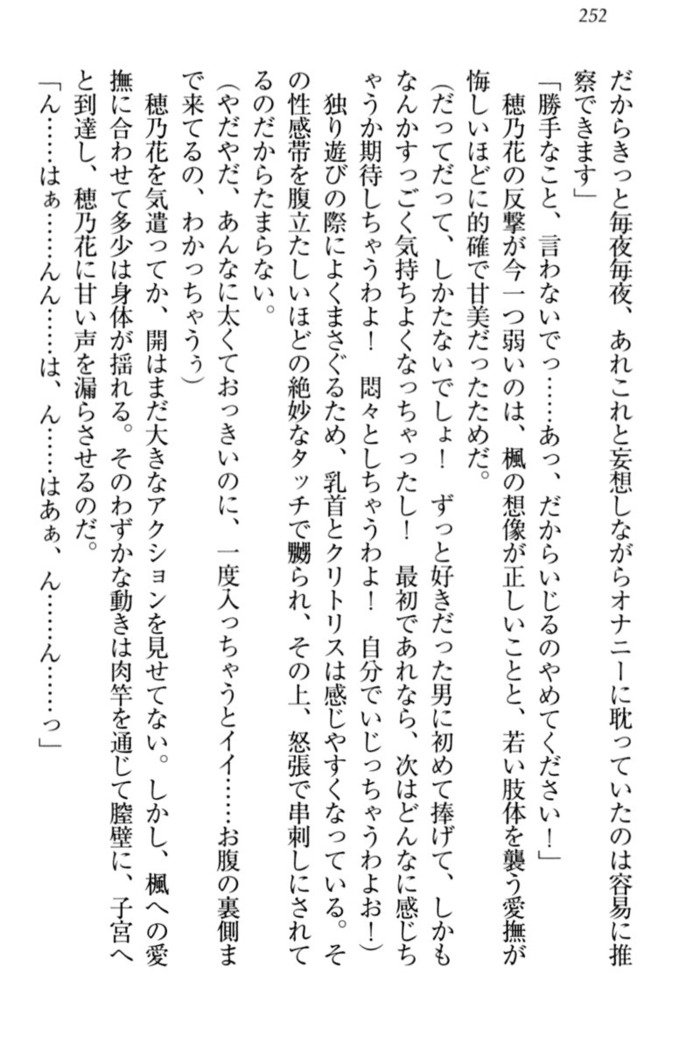 252
だからきっと毎夜毎夜、あれこれと妄想しながらオナニーに耽っていたのは容易に推
察できます」
「勝手なこと、言わないでっ……あっ、だからいじるのやめてください！」
穂乃花の反撃が今一つ弱いのは、楓の想像が正しいことと、若い肢体を襲う愛撫が
悔しいほどに的確で甘美だったためだ。
（だってだって、しかたないでしょ！　ずっと好きだった男に初めて捧げて、しかも
なんかすっごく気持ちよくなっちゃったし！　最初であれなら、次はどんなに感じち
ゃうか期待しちゃうわよ！　悶々としちゃうわよ！　自分でいじっちゃうわよお！）
独り遊びの際によくまさぐるため、乳首とクリトリスは感じやすくなっている。そ
の性感帯を腹立たしいほどの絶妙なタッチで嬲られ、その上、怒張で串刺しにされて
るのだからたまらない。
（やだやだ、あんなに太くておっきいのに、一度入っちゃうとイイ……お腹の裏側ま
で来てるの、わかっちゃうぅ）
穂乃花を気遣ってか、開はまだ大きなアクションを見せてない。しかし、楓への愛
撫に合わせて多少は身体が揺れる。そのわずかな動きは肉竿を通じて膣壁に、子宮へ
と到達し、穂乃花に甘い声を漏らさせるのだ。
「ん……はぁ……んん……は、ん……はあぁ、ん……ん……っ」